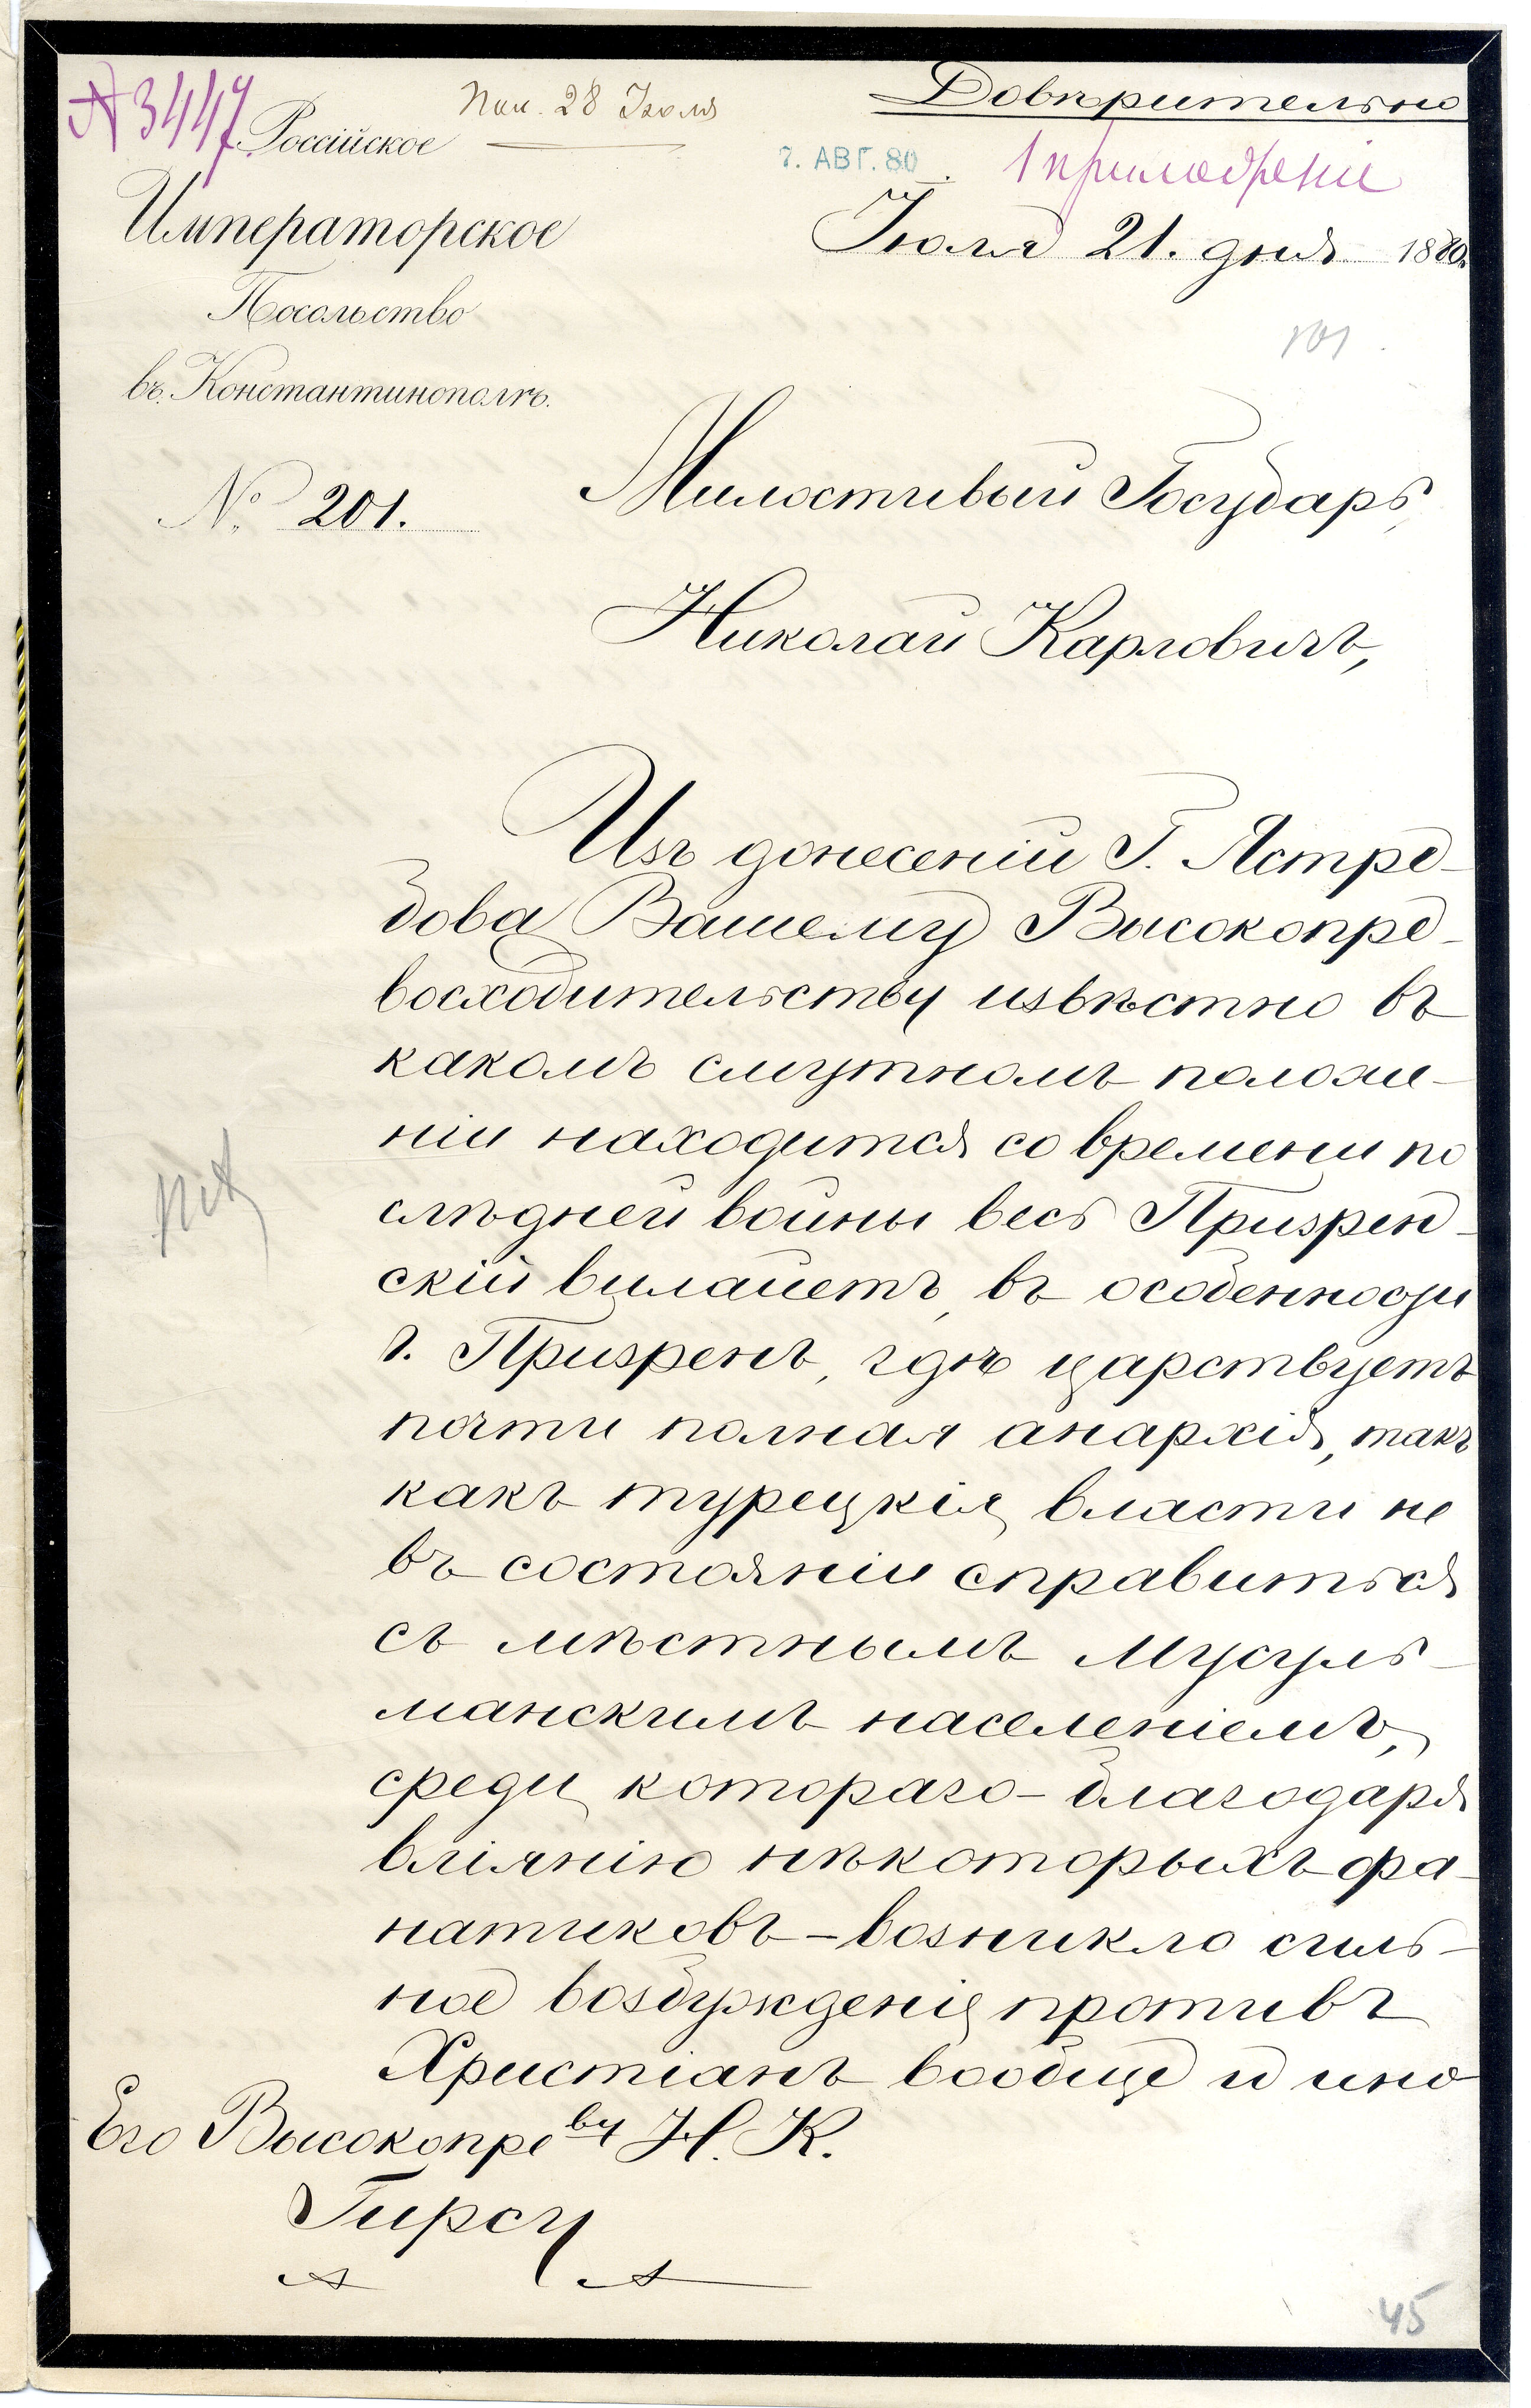 Довѣрительно
№ 3447.
Пол. 28 Іюля
Россійское
7. АВГ. 80
1 приложеніе
Императорское
Іюля 21. дня 1880.
Посольство
въ Константинополѣ.
101.
№ 201.
Милостивый Государь,
Николай Карловичъ,
Изъ донесеній Г. Ястре-
бова Вашему Высокопре-
восходительству извѣстно въ
какомъ смутномъ положе-
ніи находится со времени по
слѣдней войны весь Призрен-
скій вилайетъ, въ особенности
г. Призренъ, гдѣ царствуетъ
почти полная анархія, такъ
какъ турецкія власти не
въ состояніи справиться
съ мѣстнымъ Мусуль-
манскимъ населеніемъ,
среди котораго - благодаря
вліянію нѣкоторыхъ фа-
натиковъ - возникло силь-
ное возбужденіе противъ
Христіанъ вообще и ино
Его Высокопре ву Н. К.
Гирсу
45